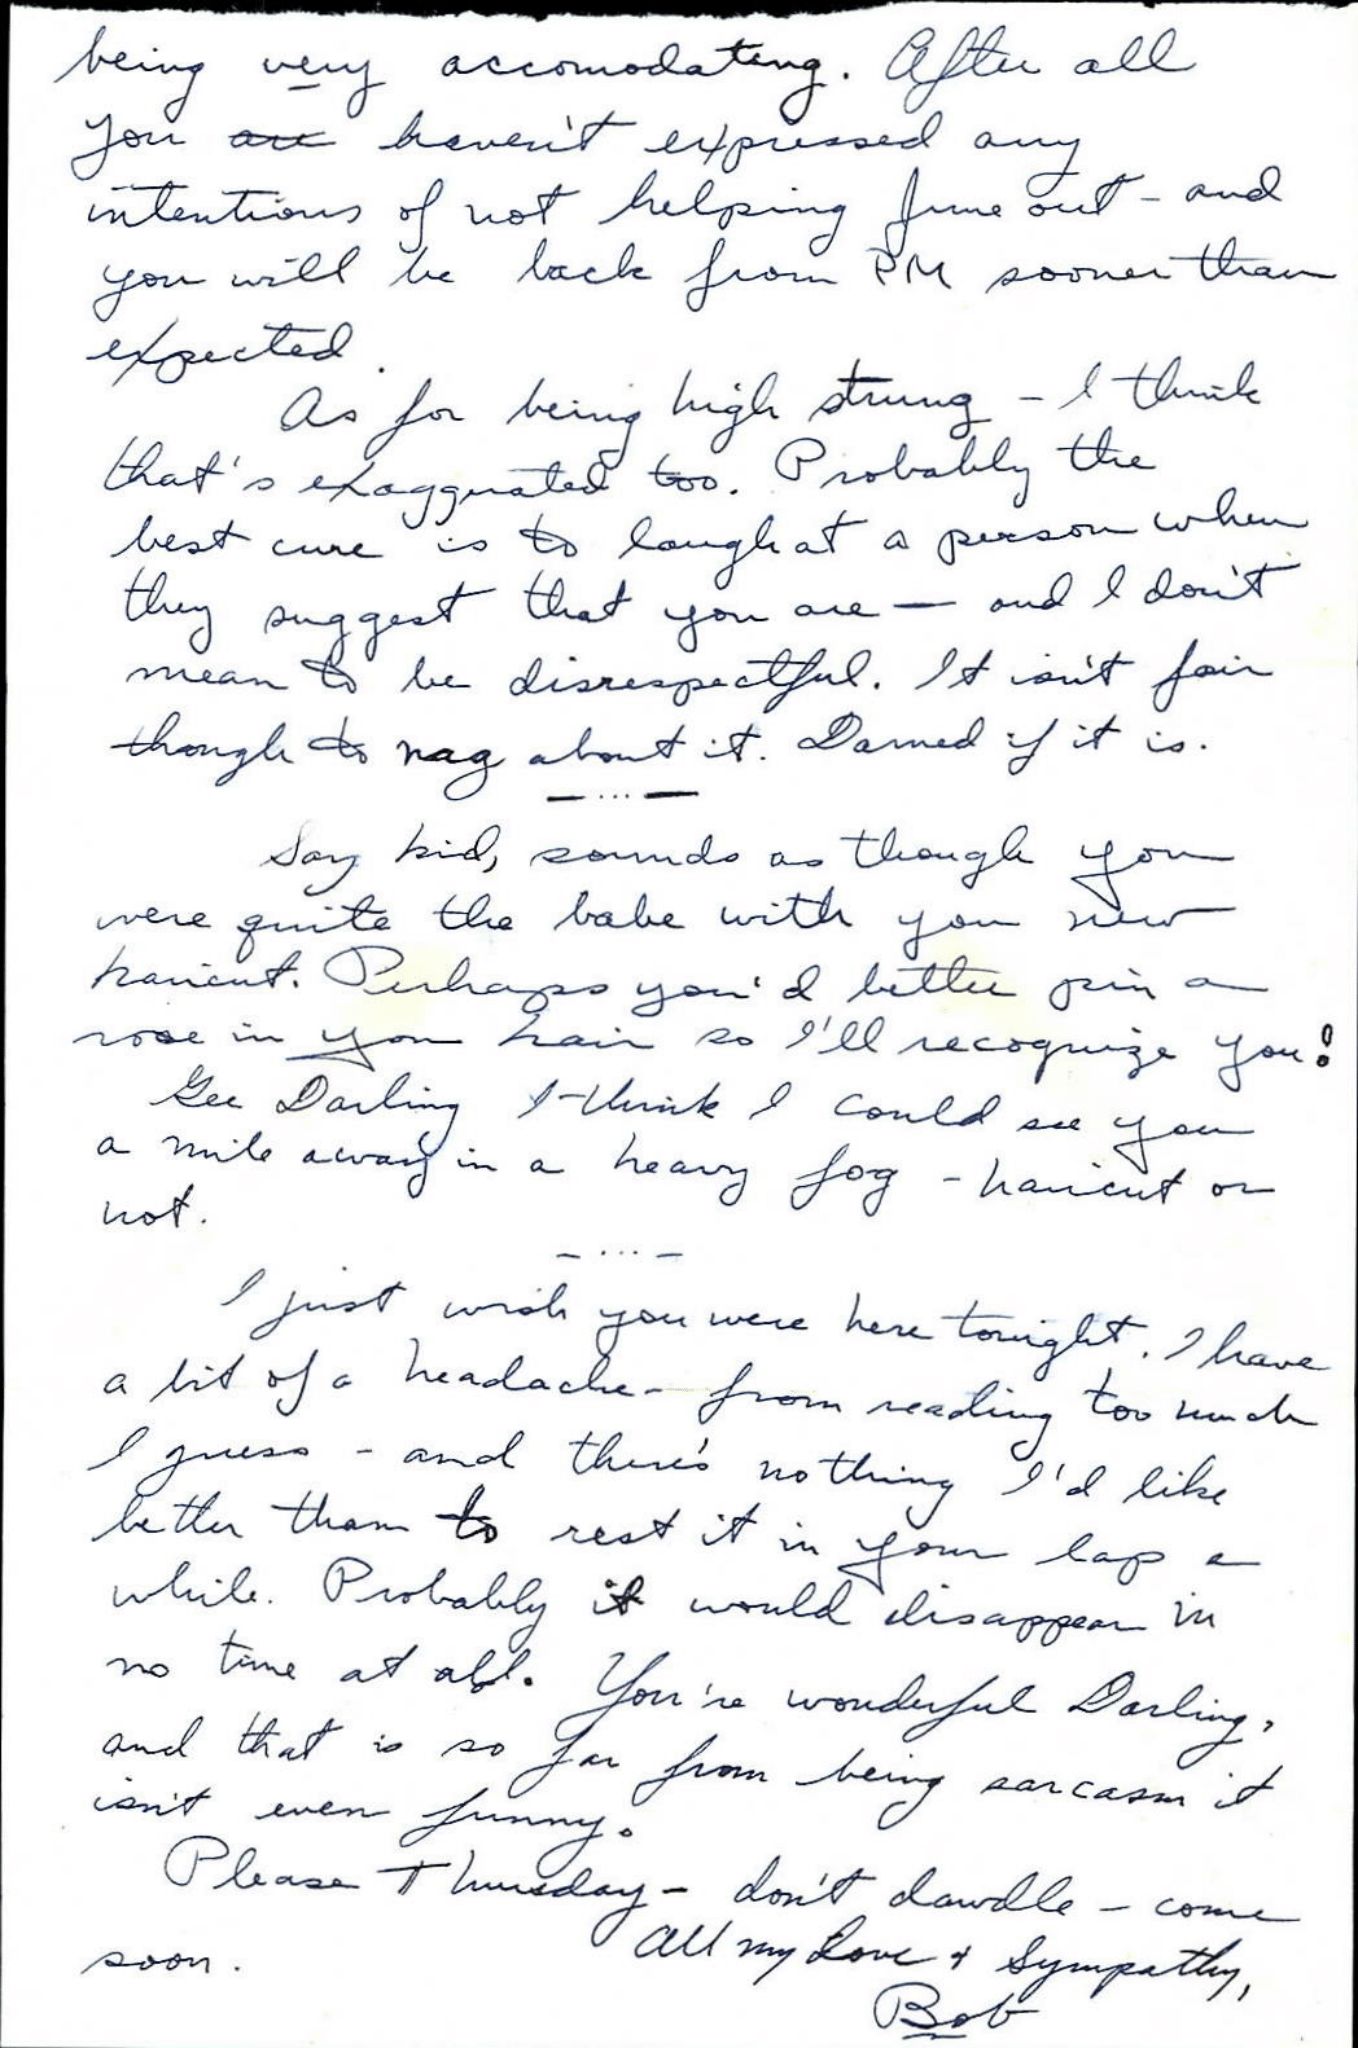 being very accomodating. After all
you are haven't expressed any
intentions of not helping June out - and
you will be back from PM sooner than
expected.
As for being high strung - I think
that's exaggerated too. Probably the
best cure is to laugh at a person when
they suggest that you are — and I don't
mean to be disrespectful. It isn't fair
though to nag about it. Darned if it is.
— ... —
Say kid, sounds as though you
were quite the babe with you new
haircut. Perhaps you'd better pin a
rose in your hair so I'll recognize you!
Gee Darling I think I could see you
a mile away in a heavy fog - haircut or
not.
- ... -
I just wish you were here tonight. I have
a bit of a headache - from reading too much
I guess - and there's nothing I'd like
better than to rest it in your lap a
while. Probably it would disappear in
no time at all. You're wonderful Darling,
and that is so far from being sarcasm it
isn't even funny.
Please Thursday - don't dawdle - come
soon.
All my Love & Sympathy,
Bob